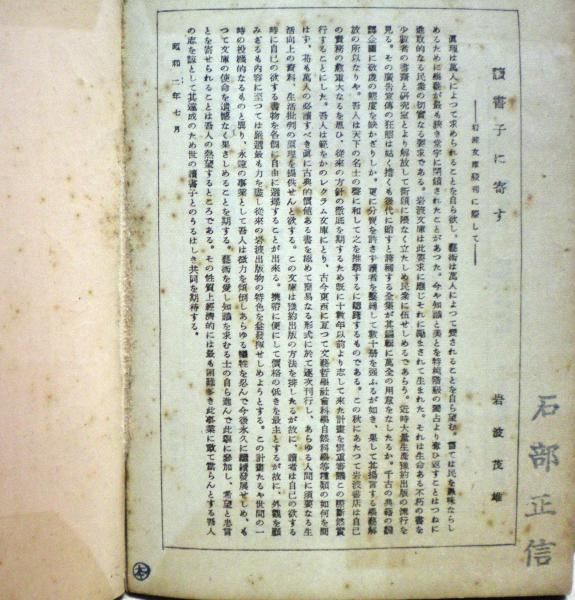 讀書子に寄す
――岩波文庫發刊に際して――
岩波茂雄
眞理は萬人によつて求められることを自ら欲し、藝術は萬人によつて愛されることを自ら望む。嘗ては民を愚昧ならし
めるために學藝が最も狹き堂宇に閉鎖されたことがあつた。今や知識と美とを特權階級の獨占より奪ひ返すことはつねに
進取的なる民衆の切實なる要求である。岩波文庫は此要求に應じそれに勵まされて生まれた。それは生命ある不朽の書を
少數者の書齋と研究室とより解放して街頭に隈なく立たしめ民衆に伍せしめるであらう。近時大量生産豫約出版の流行を
見る。その廣告宣傳の狂態は姑く措くも後代に貽すと誇稱する全集が其編輯に萬全の用意をなしたるか。千古の典籍の飜
譯企圖に敬虔の態度を缺かざりしか。更に分賣を許さず讀者を繋縛して數十册を強ふるが如き、果して其揚言する學藝解
放の所以なりや。吾人は天下の名士の聲に和して之を推擧するに躊躇するものである。この秋にあたつて岩波書店は自己
の責務の愈重大なるを思ひ、從來の方針の徹底を期するため既に十數年以前より志して來た計畫を愼重審議この際斷然實
行することにした。吾人は範をかのレクラム文庫にとり、古今東西に亙つて文藝哲學社會科學自然科學等種類の如何を問
はず、苟も萬人の必讀すべき眞に古典的價値ある書を極めて簡易なる形式に於て逐次刊行し、あらゆる人間に須要なる生
活向上の資料、生活批判の原理を提供せんと欲する。この文庫は豫約出版の方法を排したるが故に、讀者は自己の欲する
時に自己の欲する書物を各個に自由に選擇することが出來る。携帶に便にして價格の低きを最主とするが故に、外觀を顧
みざるも内容に至つては嚴選最も力を盡し從來の岩波出版物の特色を益發揮せしめようとする。この計畫たるや世間の一
時の投機的なるものと異り、永遠の事業として吾人は微力を傾倒しあらゆる犧牲を忍んで今後永久に繼續發展せしめ、も
つて文庫の使命を遺憾なく果さしめることを期する。藝術を愛し知識を求むる士の自ら進んで此擧に參加し、希望と忠言
とを寄せられることは吾人の熱望するところである。その性質上經濟的には最も困難多き此事業に敢て當らんとする吾人
の志を諒として其達成のため世の讀書子とのうるはしき共同を期待する。
昭和二年七月
石部正信